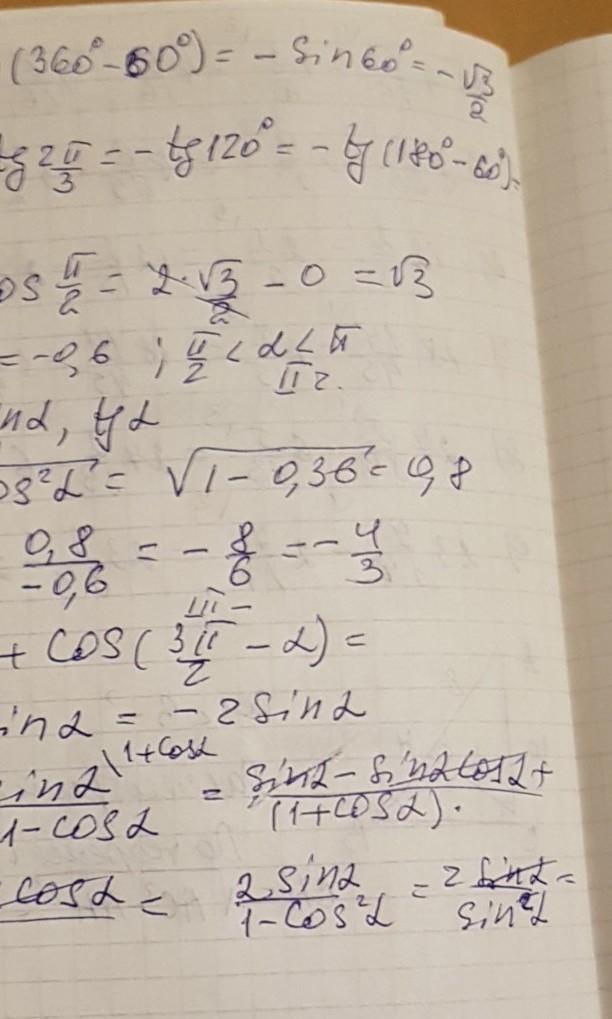 (360° - 60°) = - sin60° = - √3/2
tg 2π/3 = - tg120° = - tg(180° - 60°) =
os π/2 = 2 · √3/2 - 0 = √3
= -0,6 ; π/2 < α < π
II г.
nα, tgα
os²α = √1 - 0,36 = 0,8
0,8/-0,6 = - 8/6 = - 4/3
III -
+ cos(3π/2 - α) =
inα = - 2sinα
inα/1 - cosα \1+cosα = sinα - sinαcosα +/(1+cosα) ·
cosα = 2sinα/1 - cos²α = 2sinα/sin²α =